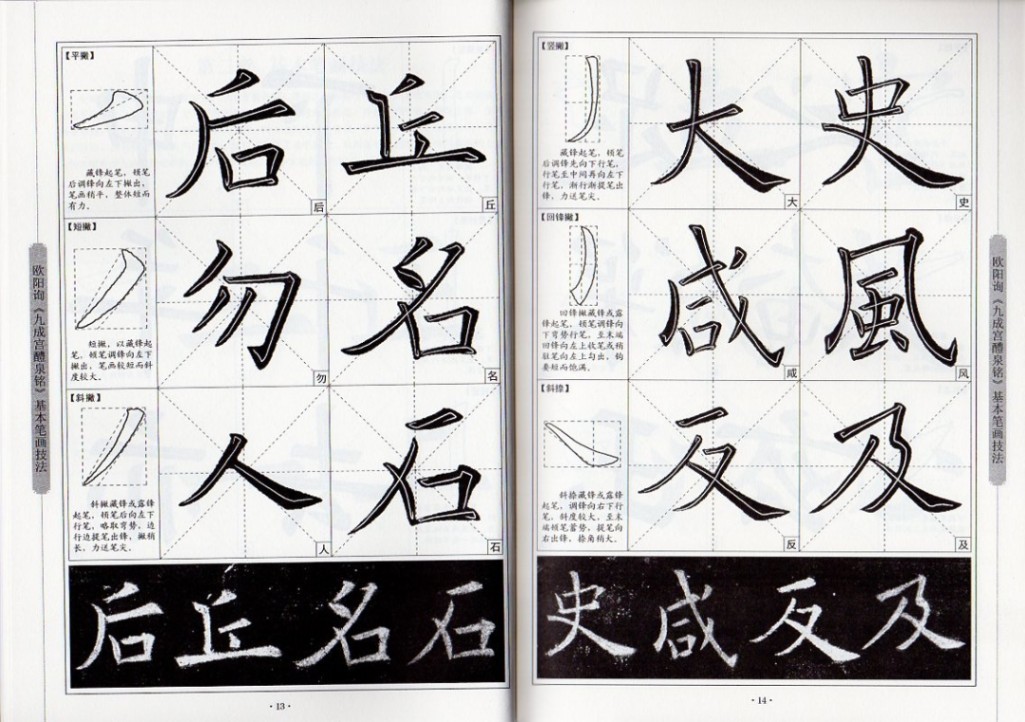 欧阳询《九成宫醴泉铭》基本笔画技法
【平撇】
藏锋起笔，顿笔
后调锋向左下撇出，
笔画稍平，整体短而
有力。
后
后
丘
丘
【短撇】
短撇，以藏锋起
笔，顿笔调锋向左下
撇出，笔画较短而斜
度较大。
勿
勿
名
名
【斜撇】
斜撇藏锋或露锋
起笔，顿笔后向左下
行笔，略取弯势，边
行边提笔出锋，撇稍
长，力送笔尖。
人
人
石
石
后丘名石
·13·
【竖撇】
藏锋起笔，顿笔
后调锋先向下行笔，
行笔至中间再向左下
行笔，渐行渐提笔出
锋，力送笔尖。
大
大
史
史
【回锋撇】
回锋撇藏锋或露
锋起笔，顿笔调锋向
下弯势行笔，至末端
回锋向左上收笔或稍
驻笔向左上勾出，钩
要短而饱满。
咸
咸
風
风
【斜捺】
斜捺藏锋或露锋
起笔，调锋向右下行
笔，斜度较大，至末
端顿笔蓄势，提笔向
右出锋，捺角稍大。
反
反
及
及
史咸反及
·14·
欧阳询《九成宫醴泉铭》基本笔画技法